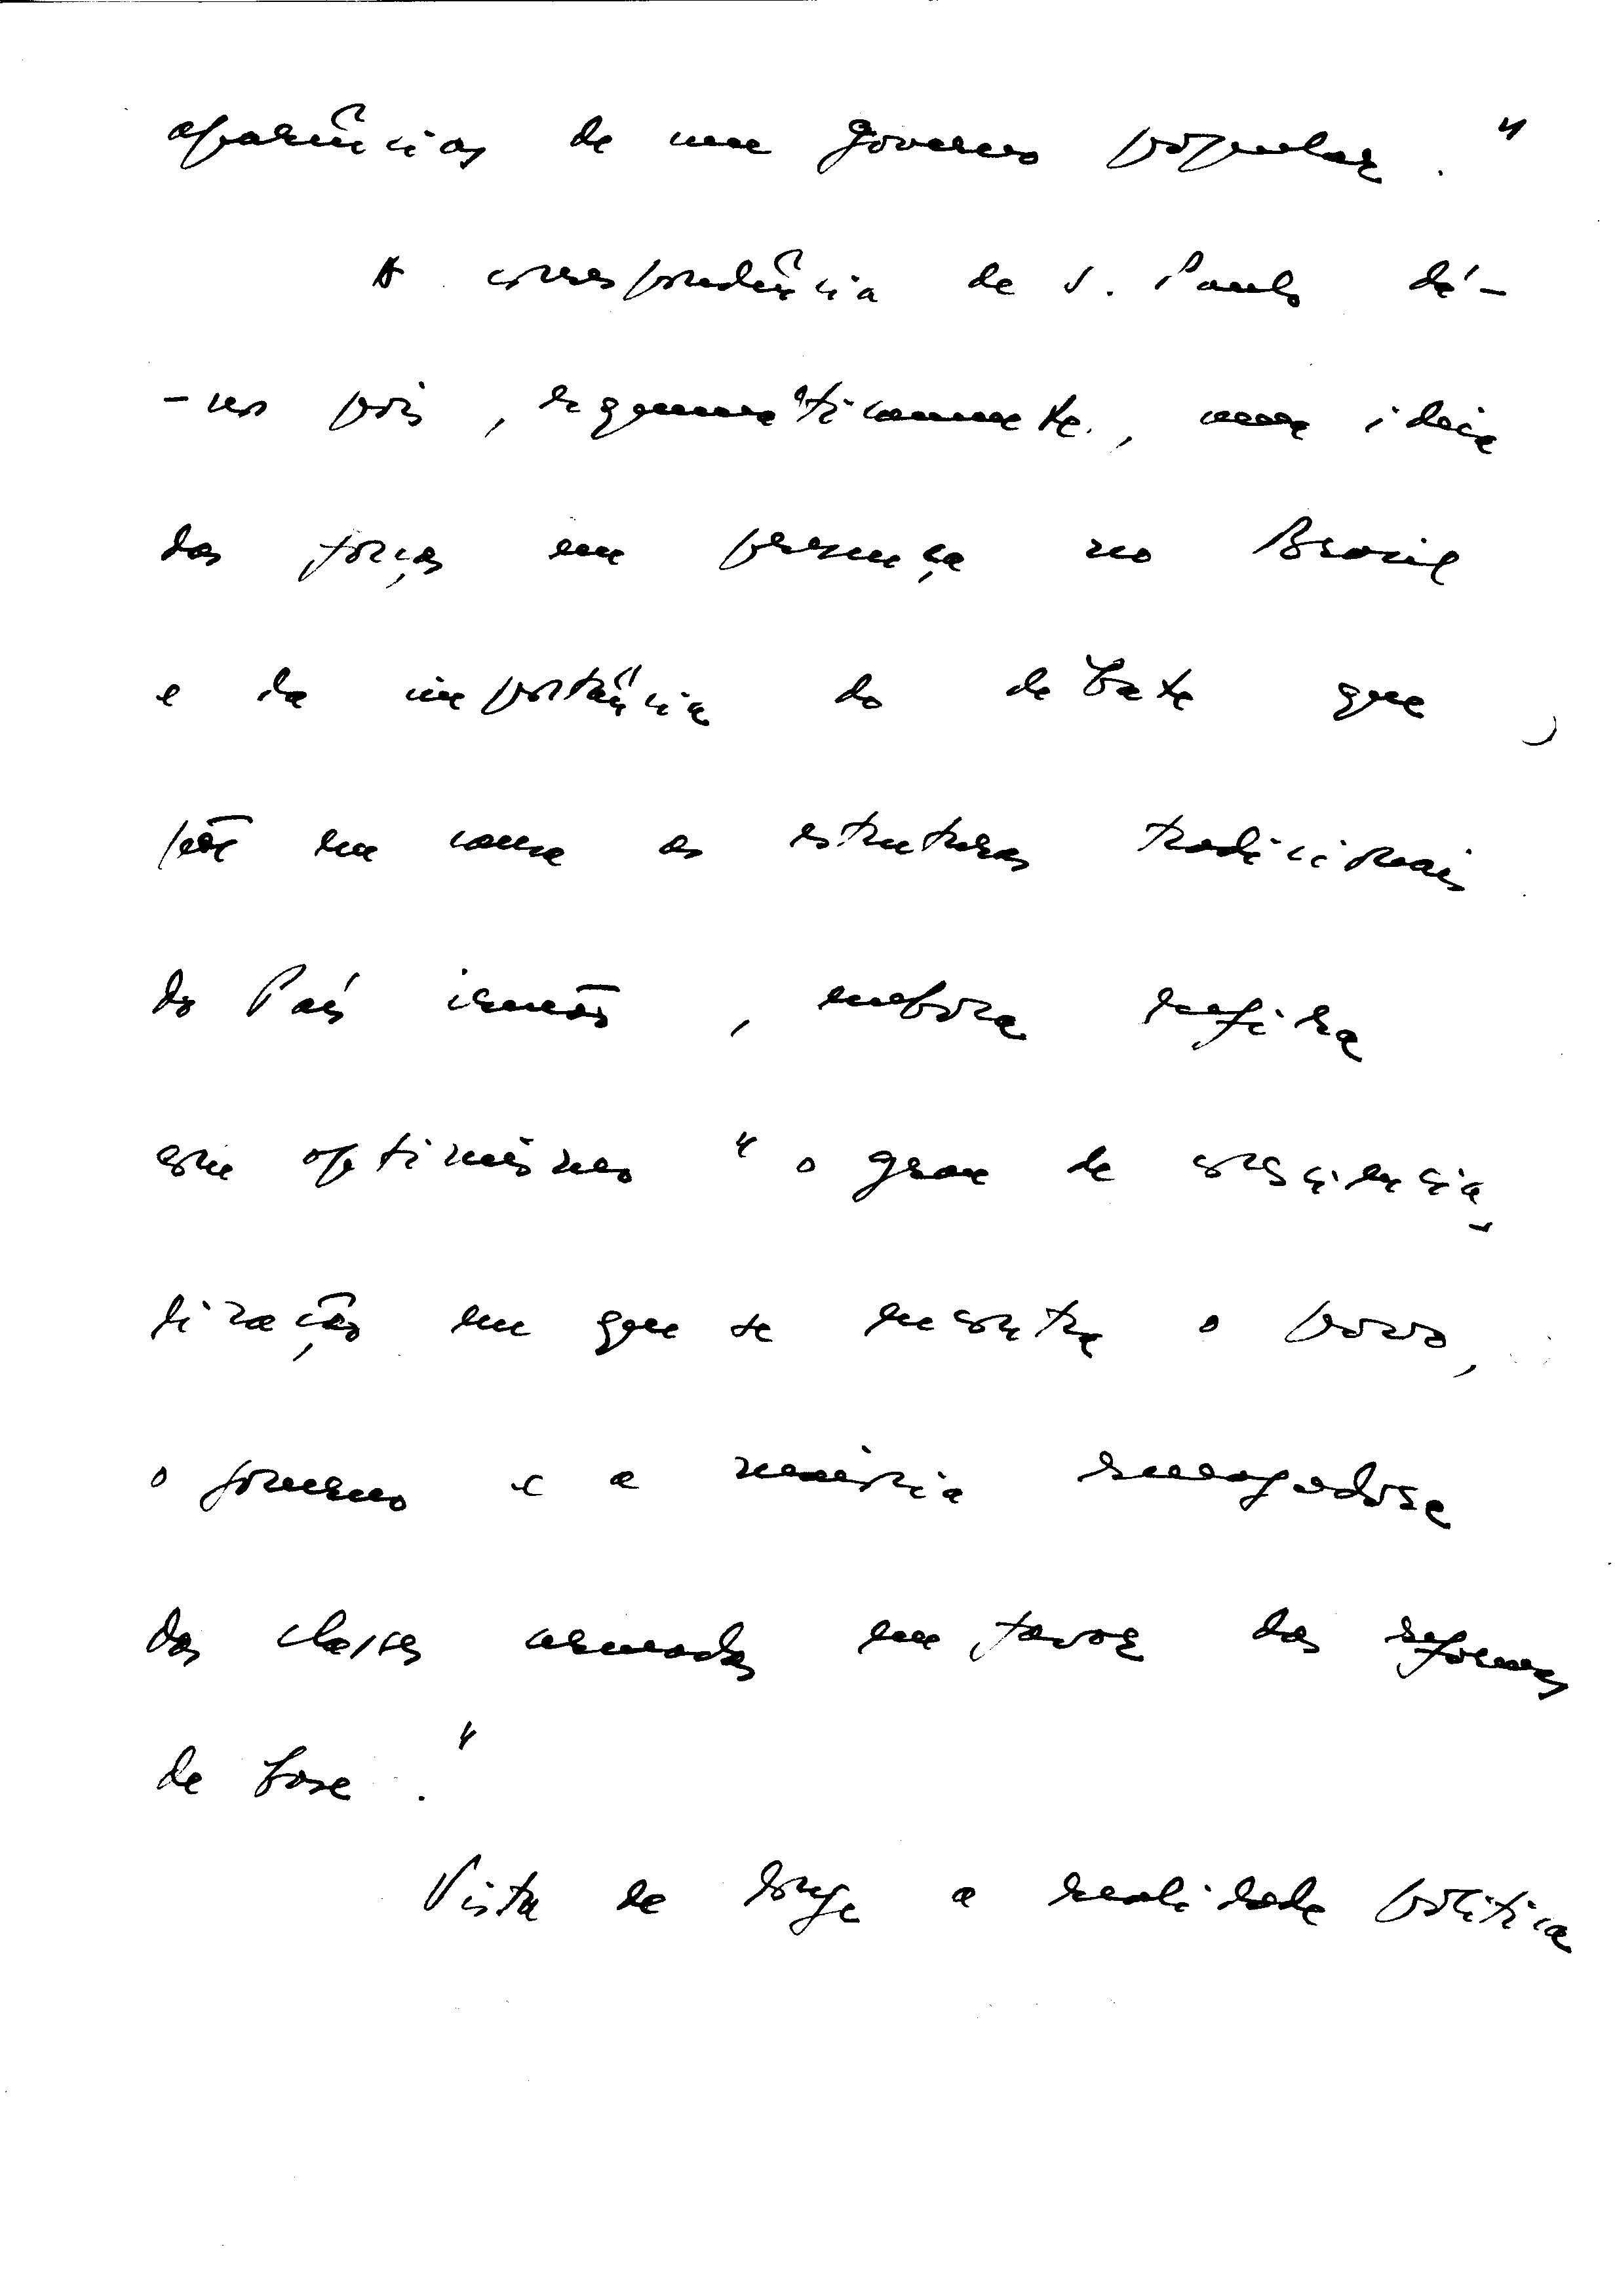 aparências de um governo popular."
A correspondência de S. Paulo dá-
-nos pois, esquemàticamente, uma ideia
das forças em presença no Brasil
e da importância do debate que
põe em causa as estruturas tradicionais
do País irmão, embora refira
com optimismo "o grau de consciencia-
lização em que se encontra o povo,
o governo e a maioria esmagadora
das classes armadas em favor das reformas
de base."
Vista de longe a realidade política